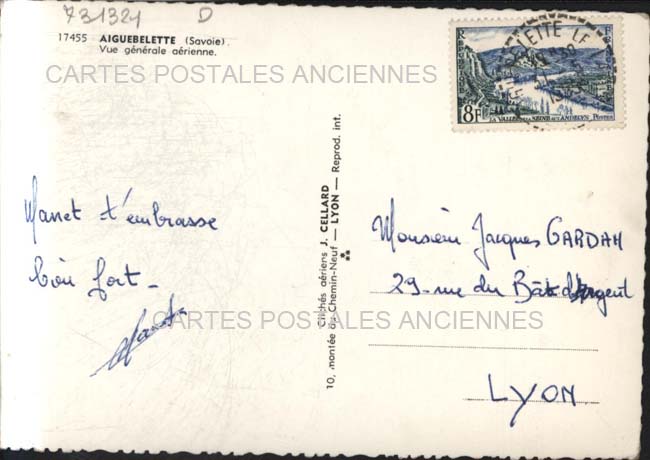 731321 D
17455 AIGUEBELETTE (Savoie).
Vue générale aérienne.
CARTES POSTALES ANCIENNES
8F
LA VALLÉE DE LA SEINE AUX ANDELYS POSTES
Manet t'embrasse
bien fort -
Manet
Clichés aériens J. CELLARD
10, montée du Chemin-Neuf — LYON — Reprod. int.
Monsieur Jacques GARDAM
29 - rue du Bât d'Argent
CARTES POSTALES ANCIENNES
LYON